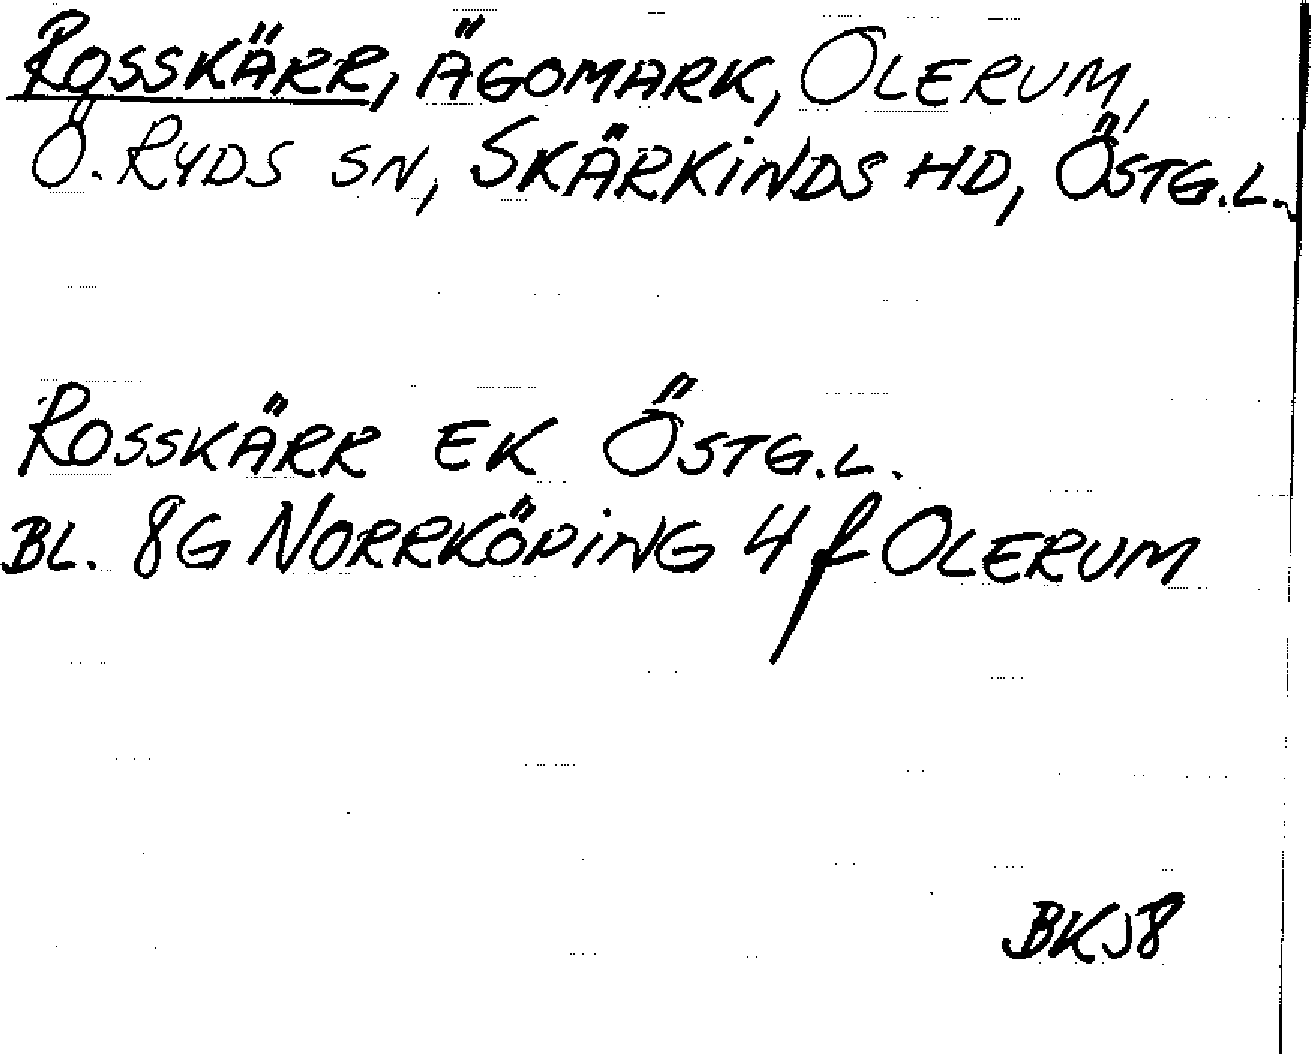 ROSSKÄRR, ÄGOMARK, OLERUM,
Ö. RYDS SN, SKÄRKINDS HD, ÖSTG.L.
ROSSKÄRR EK ÖSTG.L.
BL. 8G NORRKÖPING 4 f OLERUM
BKJ8